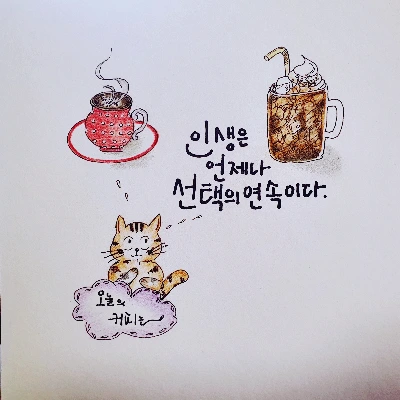 인생은
언제나
선택의 연속이다.
오늘의
커피는